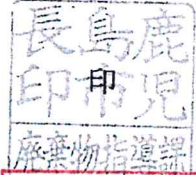 鹿児
島市
長印
印
廃棄物指導課